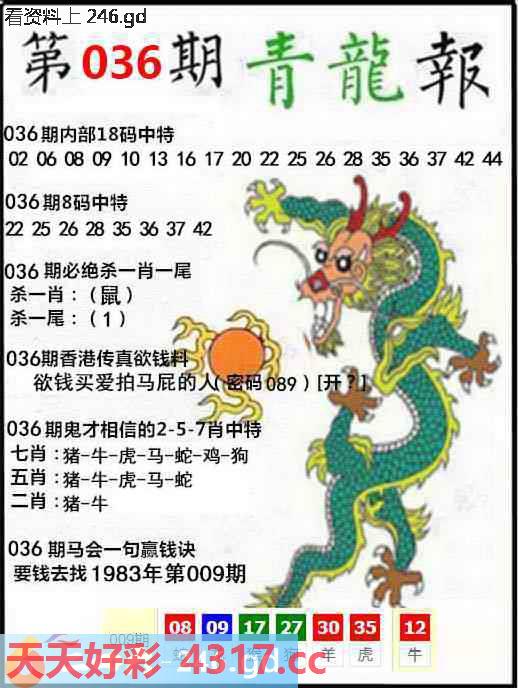 看资料上 246.gd
第036期 青龍報
036期内部18码中特
02 06 08 09 10 13 16 17 20 22 25 26 28 35 36 37 42 44
036期8码中特
22 25 26 28 35 36 37 42
036 期必绝杀一肖一尾
杀一肖：（鼠）
杀一尾：（1）
036期香港传真欲钱料
欲钱买爱拍马屁的人(密码089)[开?]
036期鬼才相信的2-5-7肖中特
七肖：猪-牛-虎-马-蛇-鸡-狗
五肖：猪-牛-虎-马-蛇
二肖：猪-牛
036 期马会一句赢钱诀
要钱去找1983年第009期
08 09 17 27 30 35 12
009期 蛇 猴 狗 羊 虎 牛
246.gd
天天好彩 4317.cc